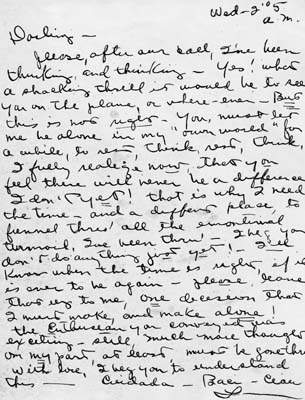 Wed - 2:05
a.m.
Darling -
Please, after our call, I've been
thinking, and thinking - Yes! what
a shocking thrill it would be to see
you on the plane, or where-ever - But
this is not right - You, must let
me be alone in my "own world" for
a while, to rest, think, rest, think,
I fully realize now - that you
feel there will never be a difference
I don't yet! that is why I need
the time - and a different place, to
funnel thru' all the emotional
turmoil, I've been thru' - I beg you
don't do anything just yet! - I'll
know when the time is right, if it
is ever to be again - please, leave
that up to me, one decision that
I must make, and make alone!
the Enthusean you conveyed, was
exciting - still, much more thought
on my part, at least, must be
with love, I beg you to understand
this -